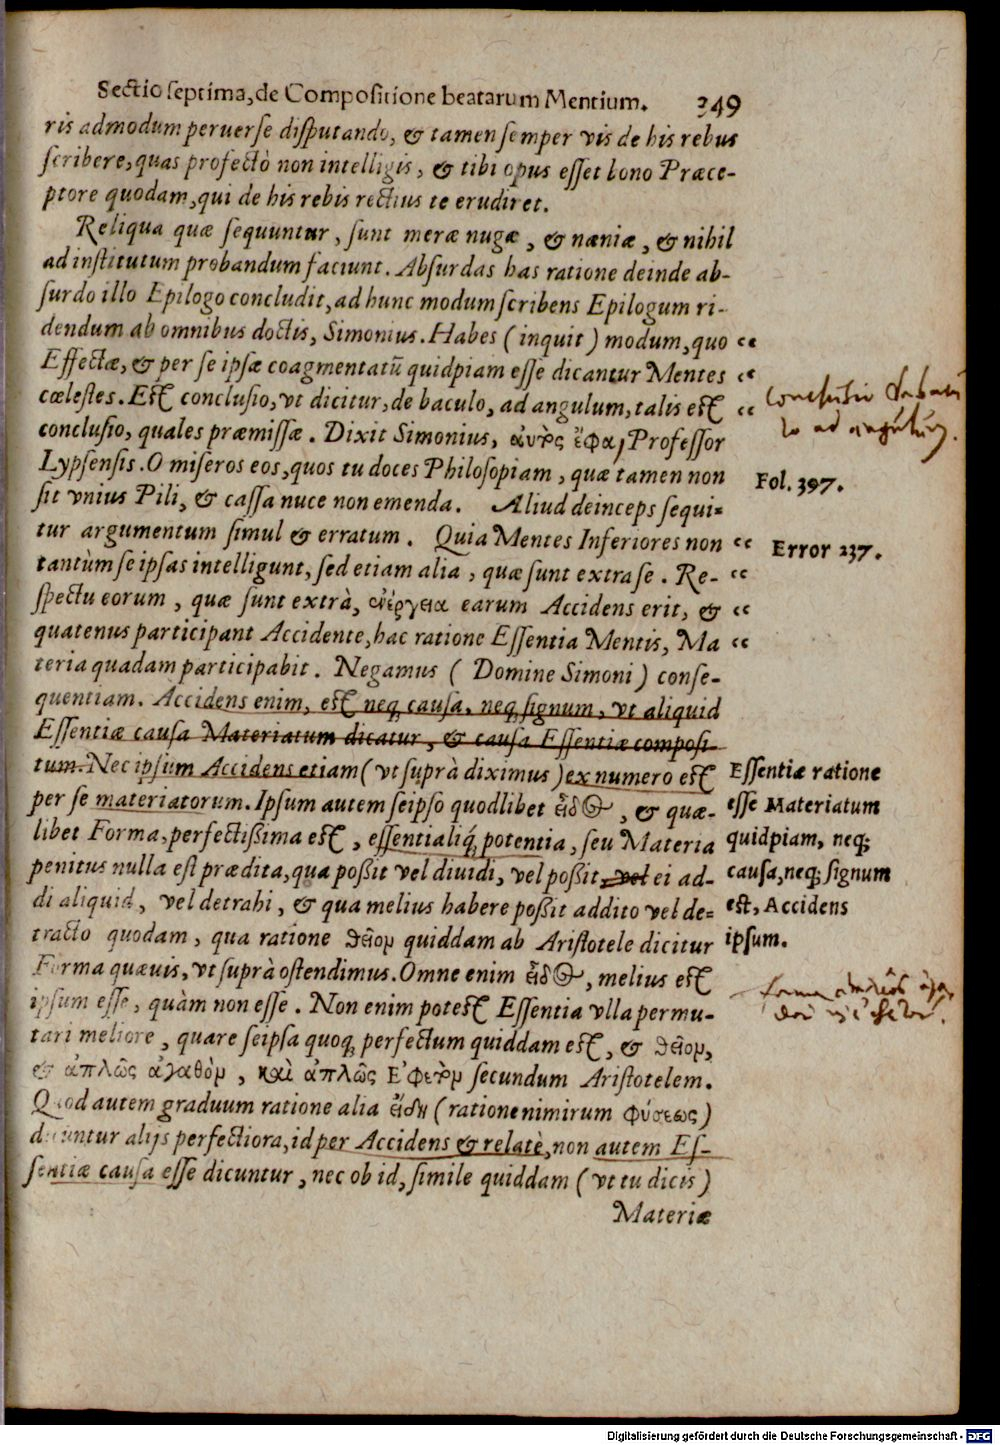 Sectio septima, de Compositione beatarum Mentium. 349
ris admodum peruerse disputando, & tamen semper vis de his rebus
scribere, quas profectò non intelligis, & tibi opus esset bono Præce-
ptore quodam, qui de his rebis rectius te erudiret.
Reliqua quæ sequuntur, sunt meræ nugæ, & næniæ, & nihil
ad institutum probandum faciunt. Absurdas has ratione deinde ab-
surdo illo Epilogo concludit, ad hunc modum scribens Epilogum ri-
dendum ab omnibus doctis, Simonius. Habes (inquit) modum, quo “
Effectæ, & per se ipsæ coagmentatū quidpiam esse dicantur Mentes “
cœlestes. Est conclusio, vt dicitur, de baculo, ad angulum, talis est “
conclusio, quales præmissæ. Dixit Simonius, αυτὸς ἔφα, Professor
Lypsensis. O miseros eos, quos tu doces Philosopiam, quæ tamen non
sit vnius Pili, & cassa nuce non emenda. Aliud deinceps sequi=
tur argumentum simul & erratum. Quia Mentes Inferiores non “
tantùm se ipsas intelligunt, sed etiam alia, quæ sunt extra se. Re- “
spectu eorum, quæ sunt extrà, ἐνέργεια earum Accidens erit, & “
quatenus participant Accidente, hac ratione Essentia Mentis, Ma “
teria quadam participabit. Negamus (Domine Simoni) conse-
quentiam. Accidens enim, est neq; causa, neq; signum, vt aliquid
Essentiæ causa Materiatum dicatur, & causa Essentiæ composi-
tum. Nec ipsum Accidens etiam (vt suprà diximus) ex numero est
per se materiatorum. Ipsum autem seipso quodlibet εἶδος, & quæ-
libet Forma, perfectißima est, essentialiq́; potentia, seu Materia
penitus nulla est prædita, qua poßit vel diuidi, vel poßit, vel ei ad-
di aliquid, vel detrahi, & qua melius habere poßit addito vel de=
tracto quodam, qua ratione θεῖον quiddam ab Aristotele dicitur
Forma quæuis, vt suprà ostendimus. Omne enim εἶδος, melius est
ipsum esse, quàm non esse. Non enim potest Essentia vlla permu-
tari meliore, quare seipsa quoq; perfectum quiddam est, & θεῖον,
& ἁπλῶς ἀγαθὸν, καὶ ἁπλῶς Ἐφετὸν secundum Aristotelem.
Quod autem graduum ratione alia εἴδη (ratione nimirum φύσεως)
dicuntur alijs perfectiora, id per Accidens & relatè, non autem Es-
sentiæ causa esse dicuntur, nec ob id, simile quiddam (vt tu dicis)
Materiæ
Conclusio de bacu
lo ad angulum.
Fol. 397.
Error 237.
Essentiæ ratione
esse Materiatum
quidpiam, neq;
causa, neq; signum
est, Accidens
ipsum.
forma
Digitalisierung gefördert durch die Deutsche Forschungsgemeinschaft - DFG